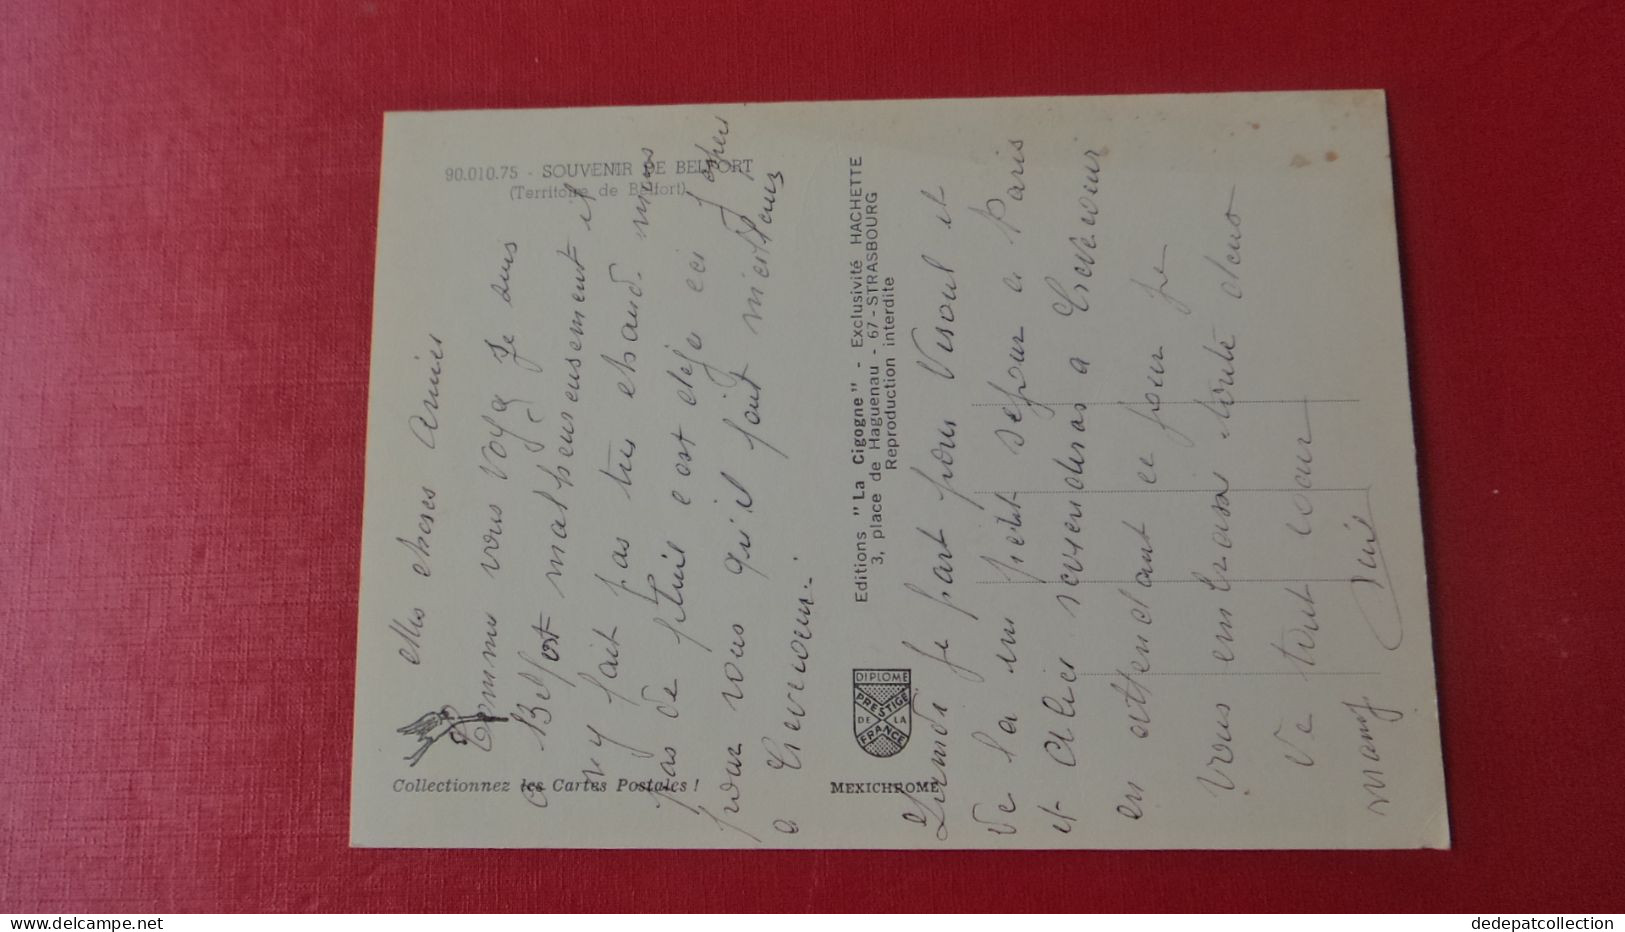 90.010.75 - SOUVENIR DE BELFORT
(Territoire de Belfort)
Mes cheres Amies
Comme vous voye je suis
a Belfort malheureusement il
n y fait pas tres chaud mais
pas de pluie c est deja ca j espere
pour vous qu il fait meilleur
a
Collectionnez les Cartes Postales !
Editions "La Cigogne" - Exclusivité HACHETTE
3, place de Haguenau - 67 - STRASBOURG
Reproduction interdite
DIPLOME
PRESTIGE
DE LA
FRANCE
MEXICHROME
je part pour Vesoul et
de la un petit sejour a Paris
et reviendras a
en attendant ce jour je
vous embrasse toute deux
de tout coeur